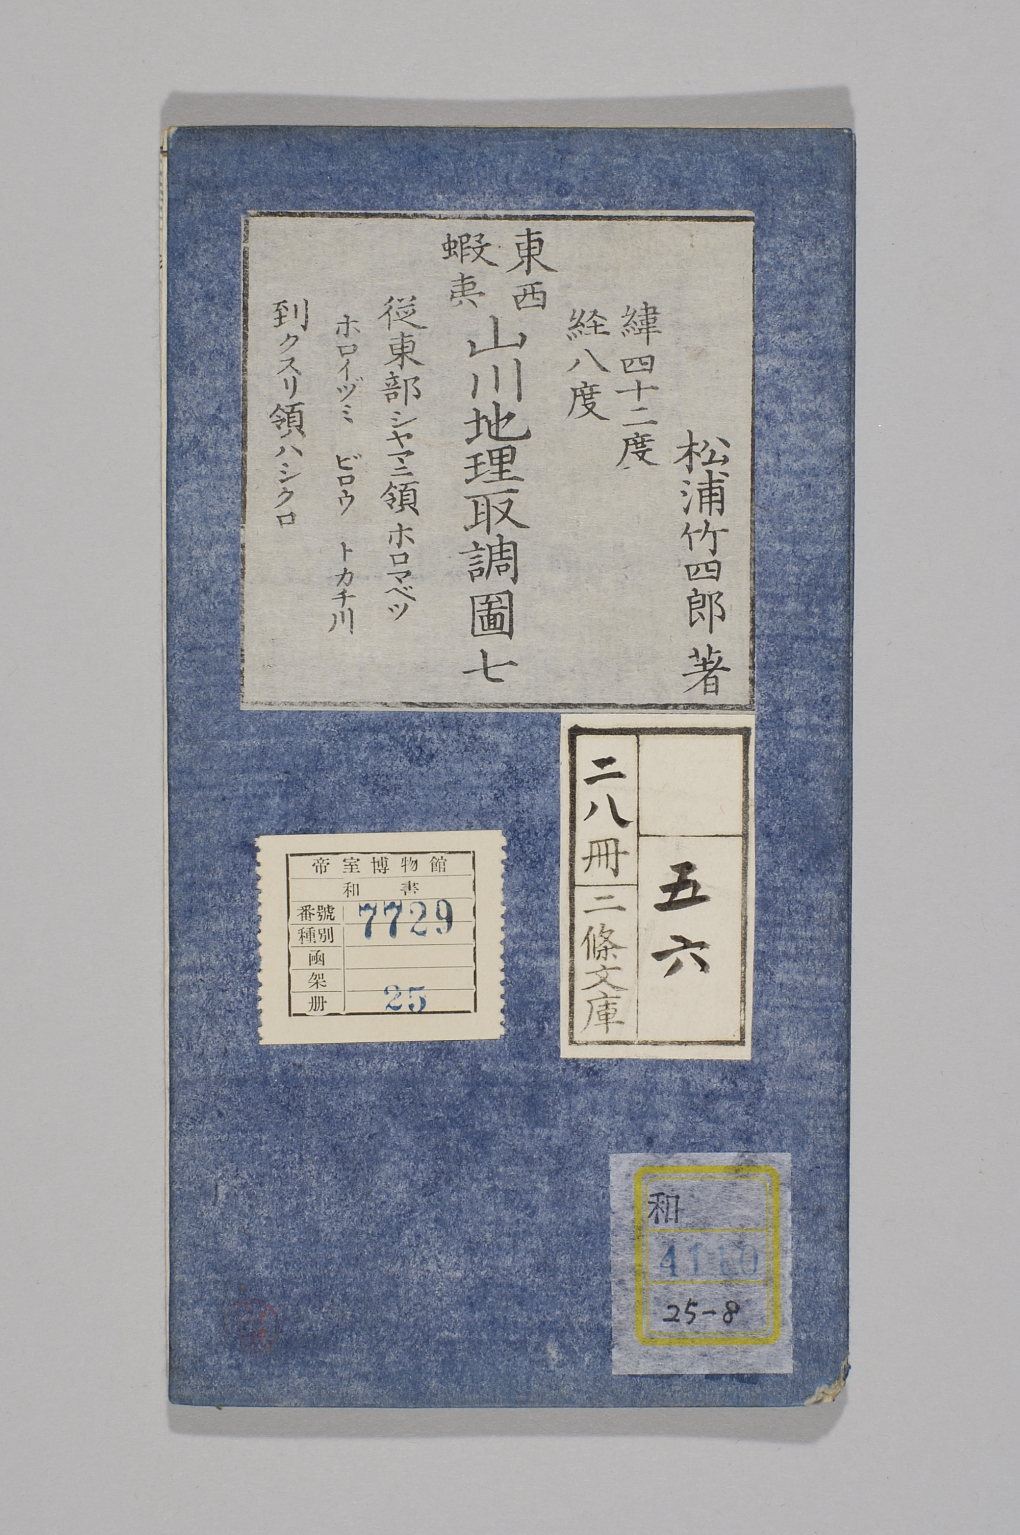 松浦竹四郎著
緯四十二度
経八度
東西
蝦夷
山川地理取調圖七
従東部シヤマニ領ホロマベツ
ホロイヅミ ビロウ トカチ川
到クスリ領ハシクロ
五六
二八冊
二條文庫
帝室博物館
和書
番號 7729
種別
函
架
册 25
和
4110
25-8